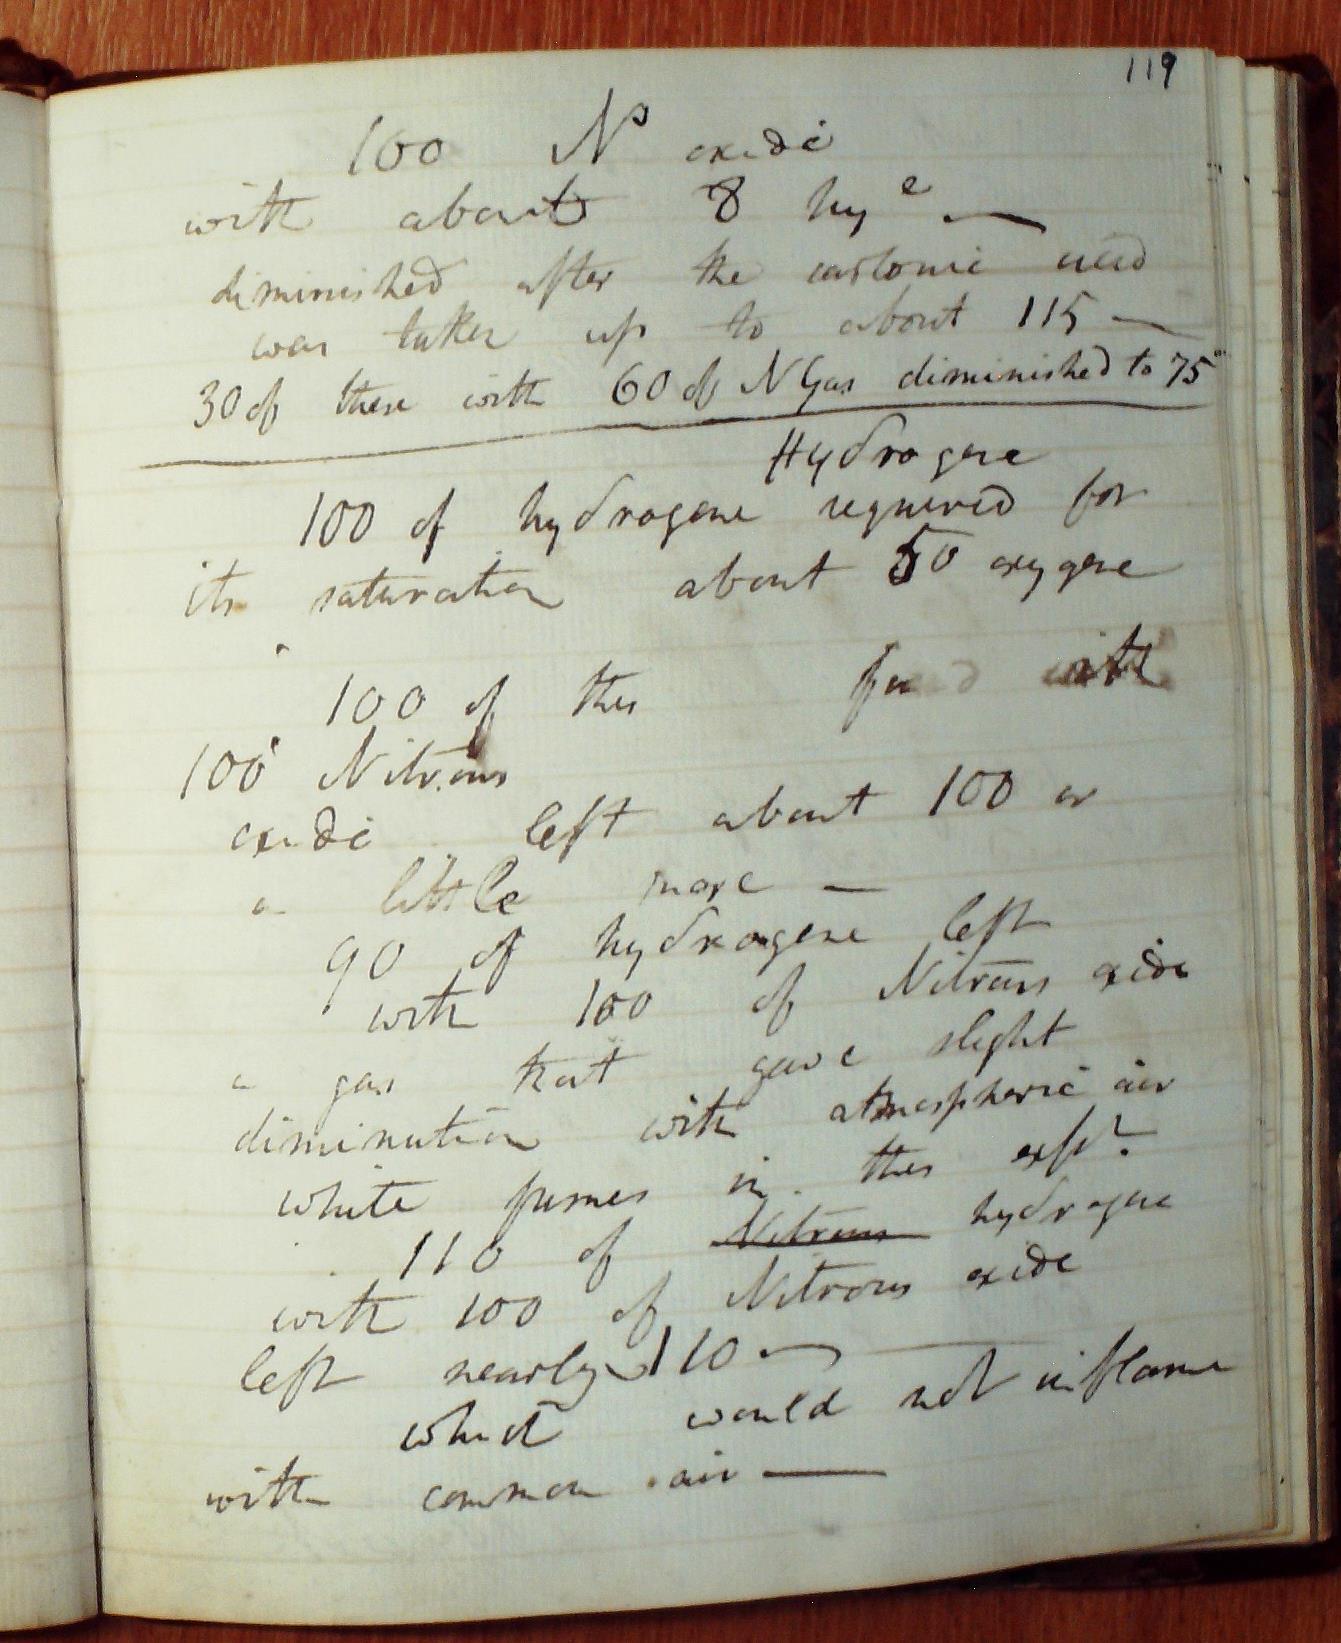 119
100 N<sup>s</sup> oxide
with about 8 hy<sup>e</sup> —
diminished after the carbonic acid
was taken up to about 115 —
30 of these with 60 of N Gas diminished to 75
Hydrogene
100 of hydrogene required for
its saturation about 50 oxygene
100 of this with
100 Nitrous
oxide left about 100 or
a little more —
90 of hydrogene left
with 100 of Nitrous oxide
a gas that gave slight
diminution with atmospheric air
white fumes in this exp<sup>t</sup>.
110 of Nitrous hydrogene
with 100 of Nitrous oxide
left nearly 110 —
which would not inflame
with common air —